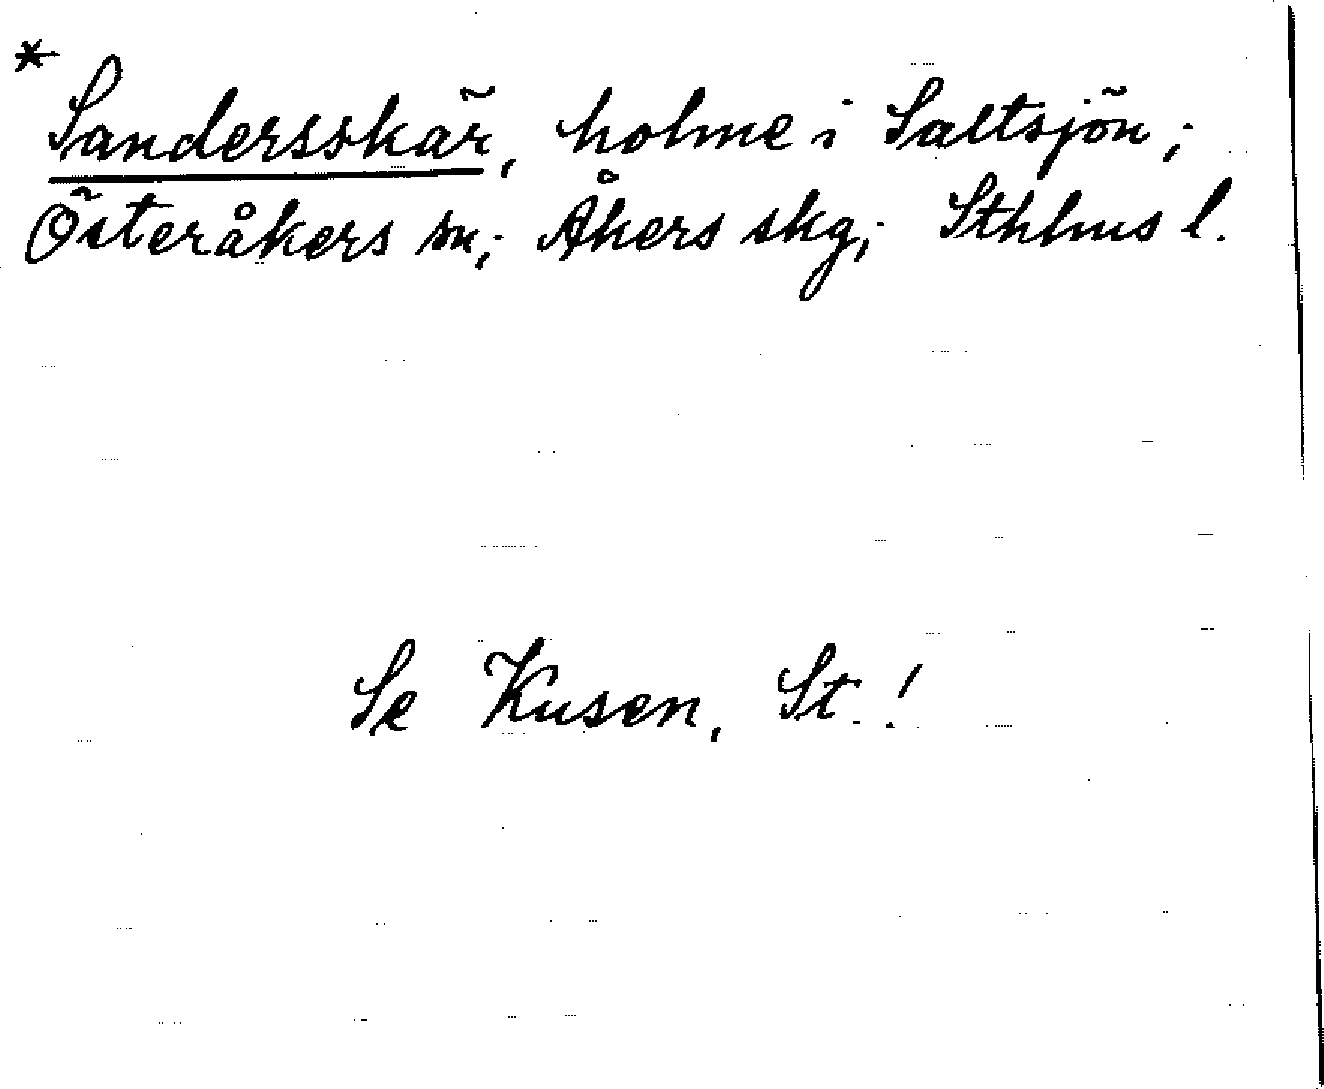 * Sandersskär, holme i Saltsjön;
Österåkers sn; Åkers skg; Sthlms l.
Se Kusen, St.!